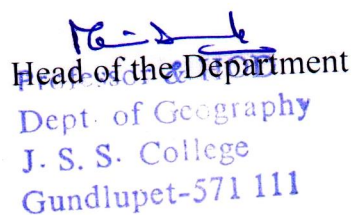 Head of the Department
Professor & HOD
Dept. of Geography
J. S. S. College
Gundlupet-571 111